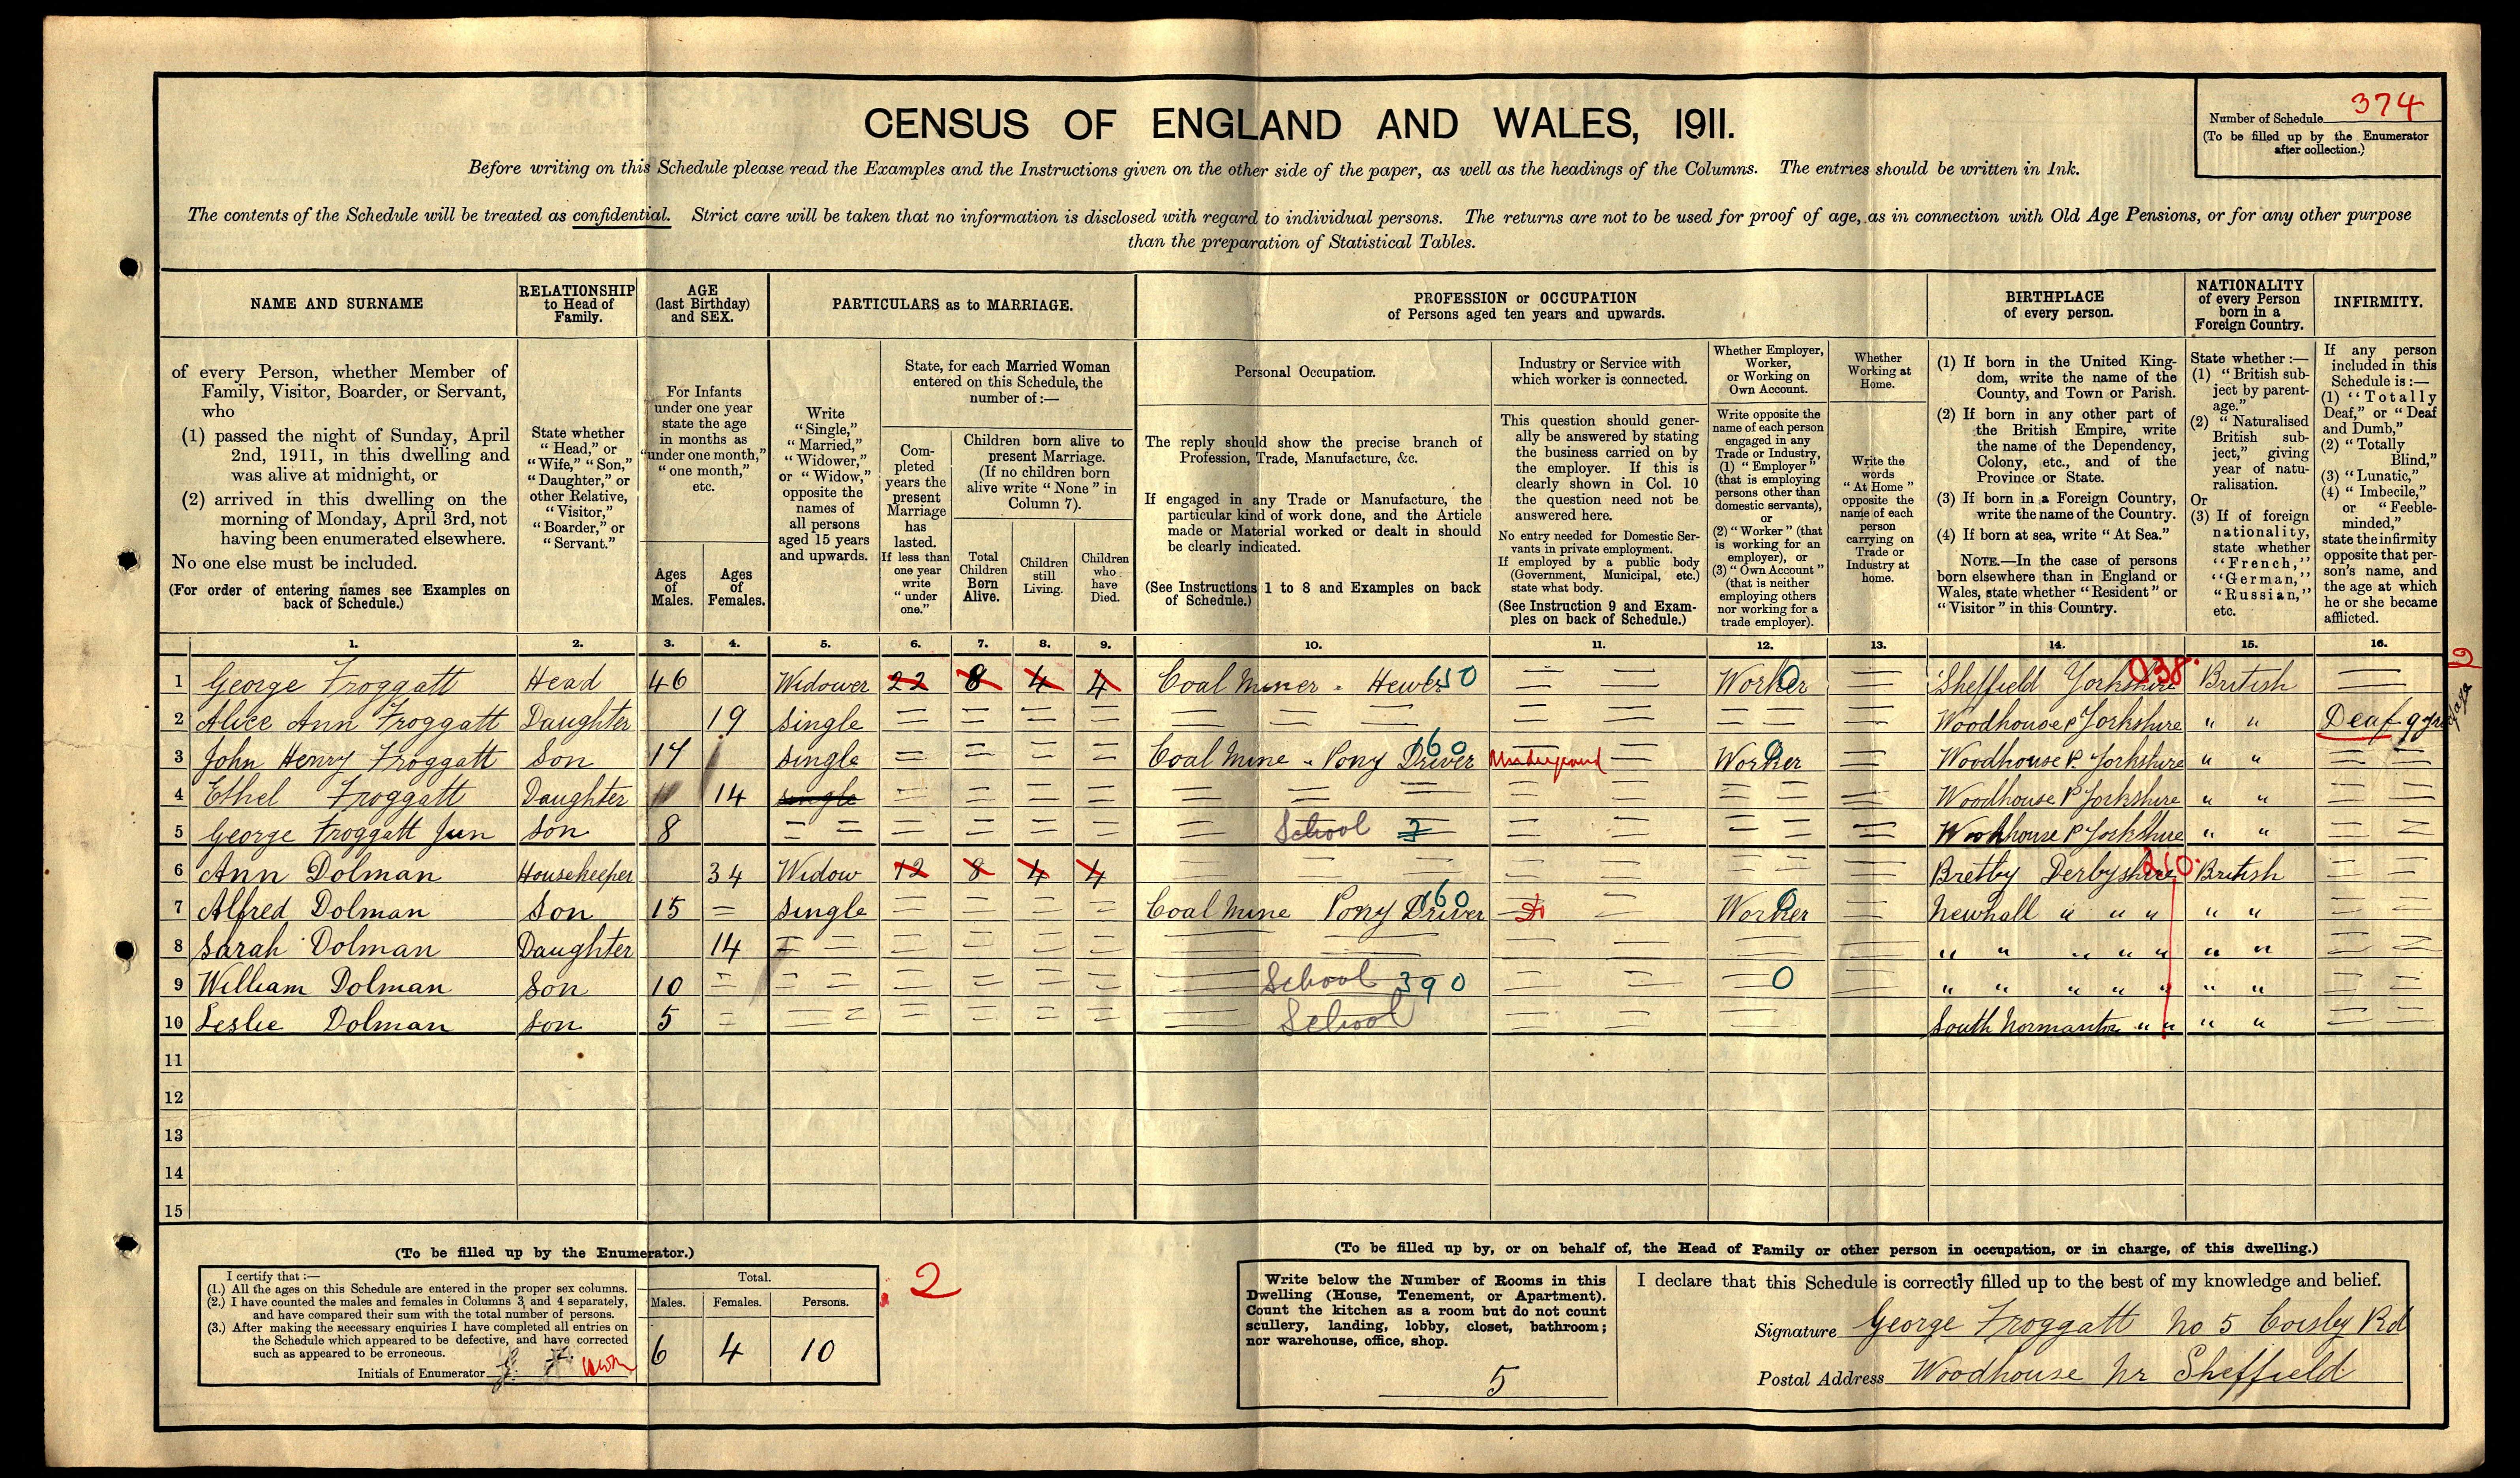 CENSUS OF ENGLAND AND WALES, 1911.
Number of Schedule 374
(To be filled up by the Enumerator
after collection.)
Before writing on this Schedule please read the Examples and the Instructions given on the other side of the paper, as well as the headings of the Columns. The entries should be written in Ink.
The contents of the Schedule will be treated as confidential. Strict care will be taken that no information is disclosed with regard to individual persons. The returns are not to be used for proof of age, as in connection with Old Age Pensions, or for any other purpose
than the preparation of Statistical Tables.
NAME AND SURNAME
of every Person, whether Member of
Family, Visitor, Boarder, or Servant,
who
(1) passed the night of Sunday, April
2nd, 1911, in this dwelling and
was alive at midnight, or
(2) arrived in this dwelling on the
morning of Monday, April 3rd, not
having been enumerated elsewhere.
No one else must be included.
(For order of entering names see Examples on
back of Schedule.)
RELATIONSHIP
to Head of
Family.
State whether
"Head," or
"Wife," "Son,"
"Daughter," or
other Relative,
"Visitor,"
"Boarder," or
"Servant."
AGE
(last Birthday)
and SEX.
For Infants
under one year
state the age
in months as
"under one month,"
"one month,"
etc.
Ages
of
Males.
Ages
of
Females.
PARTICULARS as to MARRIAGE.
Write
"Single,"
"Married,"
"Widower,"
or "Widow,"
opposite the
names of
all persons
aged 15 years
and upwards.
State, for each Married Woman
entered on this Schedule, the
number of:—
Com-
pleted
years the
present
Marriage
has
lasted.
If less than
one year
write
"under
one."
Children born alive to
present Marriage.
(If no children born
alive write "None" in
Column 7).
Total
Children
Born
Alive.
Children
still
Living.
Children
who
have
Died.
PROFESSION or OCCUPATION
of Persons aged ten years and upwards.
Personal Occupation.
The reply should show the precise branch of
Profession, Trade, Manufacture, &c.
If engaged in any Trade or Manufacture, the
particular kind of work done, and the Article
made or Material worked or dealt in should
be clearly indicated.
(See Instructions 1 to 8 and Examples on back
of Schedule.)
Industry or Service with
which worker is connected.
This question should gener-
ally be answered by stating
the business carried on by
the employer. If this is
clearly shown in Col. 10
the question need not be
answered here.
No entry needed for Domestic Ser-
vants in private employment.
If employed by a public body
(Government, Municipal, etc.)
state what body.
(See Instruction 9 and Exam-
ples on back of Schedule.)
Whether Employer,
Worker,
or Working on
Own Account.
Write opposite the
name of each person
engaged in any
Trade or Industry,
(1) "Employer"
(that is employing
persons other than
domestic servants),
or
(2) "Worker" (that
is working for an
employer), or
(3) "Own Account"
(that is neither
employing others
nor working for a
trade employer).
Whether
Working at
Home.
Write the
words
"At Home"
opposite the
name of each
person
carrying on
Trade or
Industry at
home.
BIRTHPLACE
of every person.
(1) If born in the United King-
dom, write the name of the
County, and Town or Parish.
(2) If born in any other part of
the British Empire, write
the name of the Dependency,
Colony, etc., and of the
Province or State.
(3) If born in a Foreign Country,
write the name of the Country.
(4) If born at sea, write "At Sea."
NOTE.—In the case of persons
born elsewhere than in England or
Wales, state whether "Resident" or
"Visitor" in this Country.
NATIONALITY
of every Person
born in a
Foreign Country.
State whether:—
(1) "British sub-
ject by parent-
age."
(2) "Naturalised
British sub-
ject," giving
year of natu-
ralisation.
Or
(3) If of foreign
nationality,
state whether
"French,"
"German,"
"Russian,"
etc.
INFIRMITY.
If any person
included in this
Schedule is:—
(1) "Totally
Deaf," or "Deaf
and Dumb,"
(2) "Totally
Blind,"
(3) "Lunatic,"
(4) "Imbecile,"
or "Feeble-
minded,"
state the infirmity
opposite that per-
son's name, and
the age at which
he or she became
afflicted.
1. 2. 3. 4. 5. 6. 7. 8. 9. 10. 11. 12. 13. 14. 15. 16.
1 George Froggatt Head 46 Widower 22 8 4 4 Coal Miner - Hewer 650 Worker 0 Sheffield Yorkshire 038 British
2 Alice Ann Froggatt Daughter 19 single Woodhouse P Yorkshire " " Deaf 9 yrs
3 John Henry Froggatt Son 17 single Coal Mine - Pony Driver 160 Underground Worker 0 Woodhouse P. Yorkshire " "
4 Ethel Froggatt Daughter 14 single Woodhouse P Yorkshire " "
5 George Froggatt Jun Son 8 School Woodhouse P Yorkshire " "
6 Ann Dolman Housekeeper 34 Widow 12 8 4 4 Bretby Derbyshire 260 British
7 Alfred Dolman Son 15 single Coal Mine Pony Driver 160 Do Worker 0 Newhall " " " " "
8 Sarah Dolman Daughter 14 " " " " " " "
9 William Dolman Son 10 School 390 0 " " " " " " "
10 Leslie Dolman Son 5 School South Normanton " " " "
11
12
13
14
15
(To be filled up by the Enumerator.)
I certify that:—
(1.) All the ages on this Schedule are entered in the proper sex columns.
(2.) I have counted the males and females in Columns 3 and 4 separately,
and have compared their sum with the total number of persons.
(3.) After making the necessary enquiries I have completed all entries on
the Schedule which appeared to be defective, and have corrected
such as appeared to be erroneous.
Initials of Enumerator
Total.
Males. Females. Persons.
6 4 10
2
(To be filled up by, or on behalf of, the Head of Family or other person in occupation, or in charge, of this dwelling.)
Write below the Number of Rooms in this
Dwelling (House, Tenement, or Apartment).
Count the kitchen as a room but do not count
scullery, landing, lobby, closet, bathroom;
nor warehouse, office, shop.
5
I declare that this Schedule is correctly filled up to the best of my knowledge and belief.
Signature George Froggatt No 5 Coisley Rd
Postal Address Woodhouse Nr Sheffield